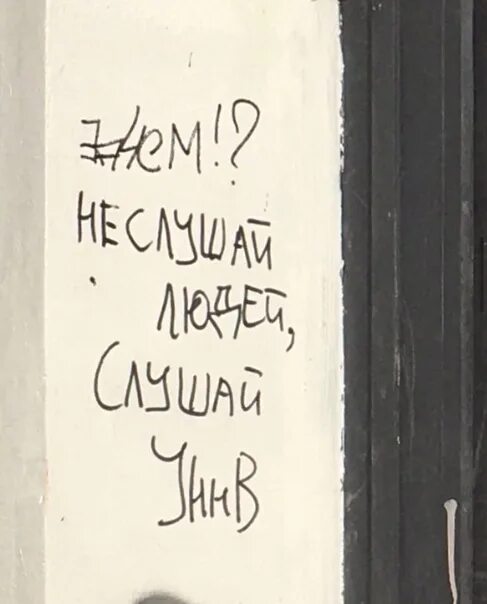 НЕСЛУШАЙ
ЛЮДЕЙ,
СЛУШАЙ
УннВ